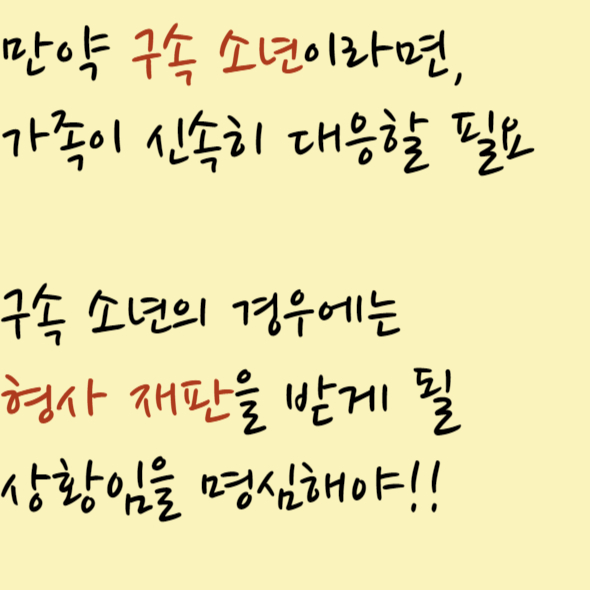 만약 구속 소년이라면,
가족이 신속히 대응할 필요
구속 소년의 경우에는
형사 재판을 받게 될
상황임을 명심해야!!